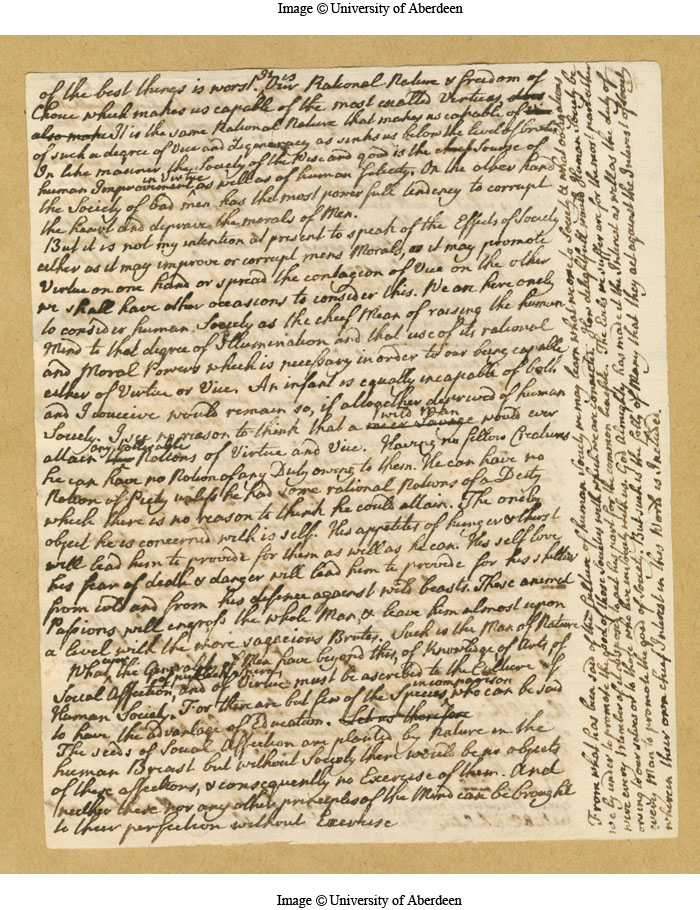 Image © University of Aberdeen
of the best things is worst. It is Our Rational Nature & freedom of
Choice which makes us capable of the most exalted Virtues,
also make It is the same Rational Nature that makes us capable of
of such a degree of Vice and Degeneracy as sinks us below the level of brutes
In like manner the Society of the Wise and good is the chief Source of
human Improvement in Virtue as well as of human felicity. On the other hand
the Society of bad men has the most powerfull tendency to corrupt
the heart and deprave the morals of Men.
But it is not my intention at present to speak of the Effects of Society
either as it may improve or corrupt mens Morals, as it may promote
Virtue on one hand or spread the contagion of Vice on the other
we shall have other occasions to consider this. We are here onely
to consider human Society as the chief Mean of raising the human
Mind to that degree of Illumination and that use of its rational
and Moral Powers which is necessary in order to our being capable
either of Virtue or Vice. An infant is equally incapable of both
and I conceive would remain so, if altogether deprived of human
Society. I see no reason to think that a meer Savage wild Man would ever
attain any the Notions of Virtue and Vice. Having no fellow Creatures
he can have no Notion of any Duty owing to them. He can have no
Notion of Piety unless he had some rational Notions of a Deity
which there is no reason to think he could attain. The onely
object he is concerned with is self. His appetites of hunger & thirst
will lead him to provide for them as well as he can. His self love
his fear of death & danger will lead him to provide for his shelter
from cold and from his defence against wild beasts. These animal
Passions will engross the whole Man & leave him almost upon
a level with the more sagacious Brutes. Such is the Man of Nature
What ever the Generality of Men have beyond this, of Knowledge of Arts of
Social Affection, of publick Spirit, and of Virtue must be ascribed to the Culture of
Human Society. For there are but few of the Species, in comparison who can be said
to have the advantage of Education. Let us therefore
The seeds of Social Affection are planted by Nature in the
human Breast but without Society there would be no objects
of these affections, & consequently no Exercise of them. And
neither these nor any other principles of the Mind can be brought
to their perfection without Exercise
From what has been said of the Culture of human Society we may learn what we owe to Society & what obligations
we ly under to promote the good of those Societies with which we are connected. How delightfull would Human Society be
were every Member of it disposed to act his part for the common benefite. The Evils we suffer are for the most part either
owing to our selves or to those who live in Society with us. God Almighty has made it the Interest as well as the duty of
every Man to promote the good of Society. But such is the folly of Many that they act against the Interest of Society
wherein their own chief Interest in this World is Included.
Image © University of Aberdeen